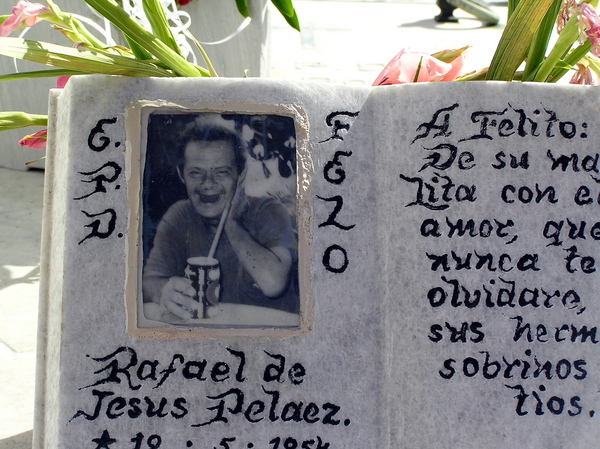 E.
P.
D.
F
E
L
O
Rafael de
Jesus Pelaez.
5 · 1954
A Felito:
De su ma
Lita con el
amor, que
nunca te
olvidare,
sus herm
sobrinos
tios.